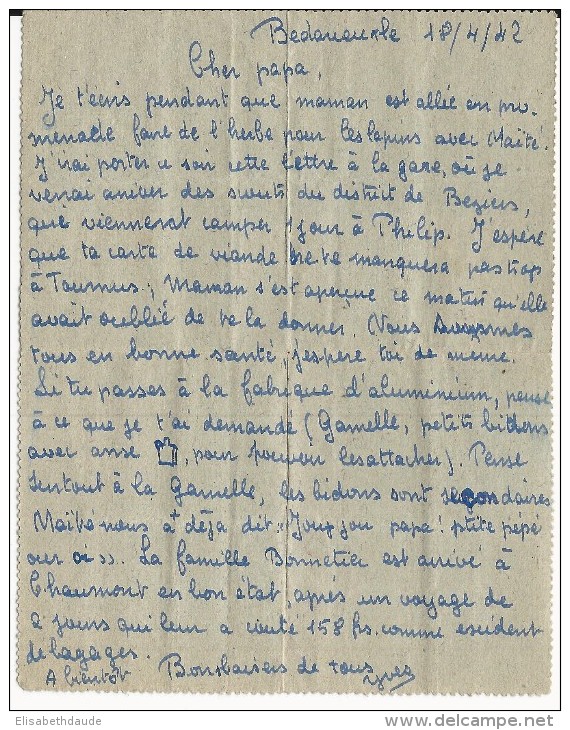 Bedarieux le 18/4/42
Cher papa,
Je t'écris pendant que maman est allée en pro-
menade faire de l'herbe pour les lapins avec Maïté.
J'irai porter ce soir cette lettre à la gare, où je
verai arriver des scouts du district de Beziers,
qui viennent camper 1 jour à Philip. J'espère
que ta carte de viande ne te manquera pas trop
à Tournus; Maman s'est aperçue ce matin qu'elle
avait oubliée de te la donner. Nous sommes
tous en bonne santé, j'espere toi de meme.
Si tu passes à la fabrique d'aluminium, pense
à ce que je t'ai demande (Gamelle, petits bidons
avec anse , pour pouvoir les attacher). Pense
surtout à la Gamelle, les bidons sont secondaires
Maïté nous à déja dit "Joup jou papa! ptite pépé
our oi". La famille Bonnetier est arrivé à
Chaumont en bon état, après un voyage de
2 jours qui leur a couté 158 frs. comme exedent
de bagages.
A bientôt Bons baisers de tous
Yves
© Elisabethdaude
www.delcampe.net